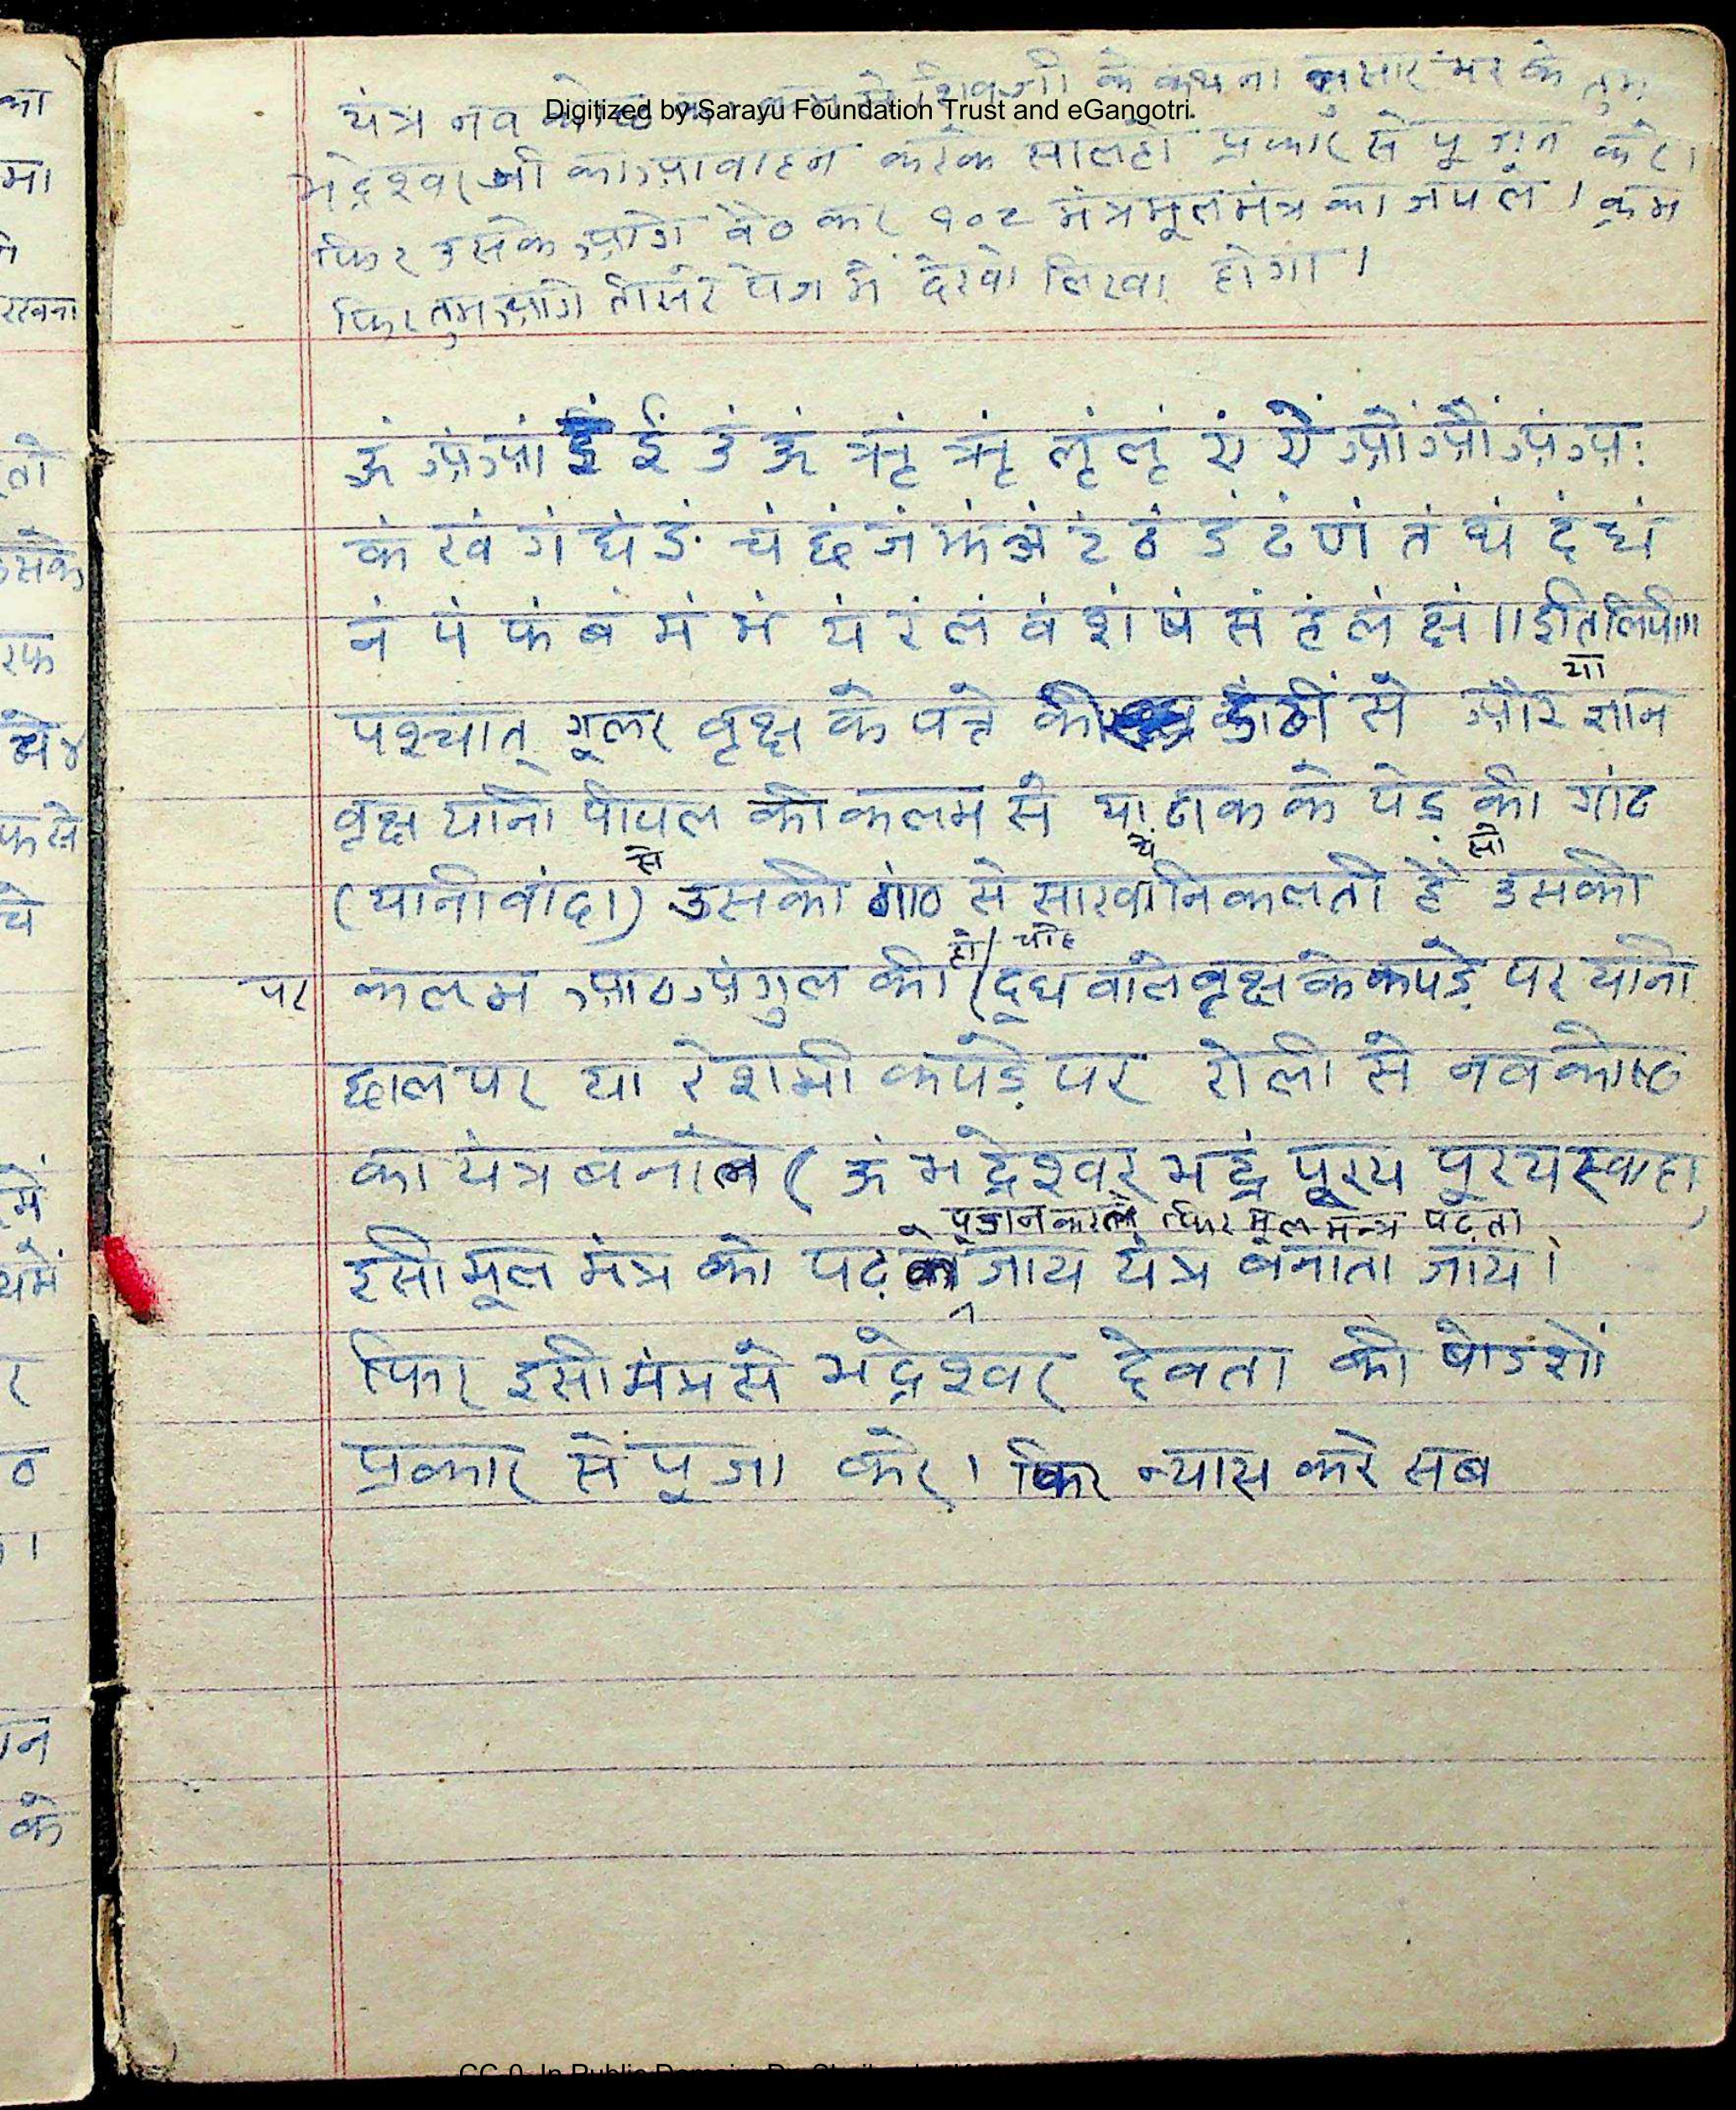 यंत्र नव के कथना नुसार भर के तुम
Digitized by Sarayu Foundation Trust and eGangotri
भद्रेश्वर जी का आवाहन करके सोलहों प्रकार से पूजन करे।
फिर उसके आगे बैठ कर १०८ मंत्र मूलमंत्र का जपले। क्रम
फिर तुम आगे तीसरे पेज में देखो लिखा होगा।
ॐ अं आं इं ईं उं ऊं ऋं ॠं लृं लॄं एं ऐं ओं औं अं अः
कं खं गं घं ङं चं छं जं झं ञं टं ठं डं ढं णं तं थं दं धं
नं पं फं बं भं मं यं रं लं वं शं षं सं हं लं क्षं ॥ इति लिपि॥
या
पश्चात् गूलर वृक्ष के पत्ते की डांठी से और ज्ञान
वृक्ष यानी पीपल की कलम से या ढाक के पेड़ की गांठ
से ये सो
(यानी बांदा) उसकी गांठ से साखा निकलती है उसकी
हो/ चाहे
पर कलम आठ अंगुल की (दूध वाले वृक्ष के कपड़े पर यानी
छाल पर या रेशमी कपड़े पर रोली से नव कोष्ठ
का यंत्र बनाले (ॐ भद्रेश्वर भद्रं पूरय पूरय स्वाहा)
पूजन करले फिर मूल मन्त्र पढ़ता
इसी मूल मंत्र को पढ़ के जाय यंत्र बनाता जाय।
फिर इसी मंत्र से भद्रेश्वर देवता की षोडशों
प्रकार से पूजा करे। फिर न्यास करे सब